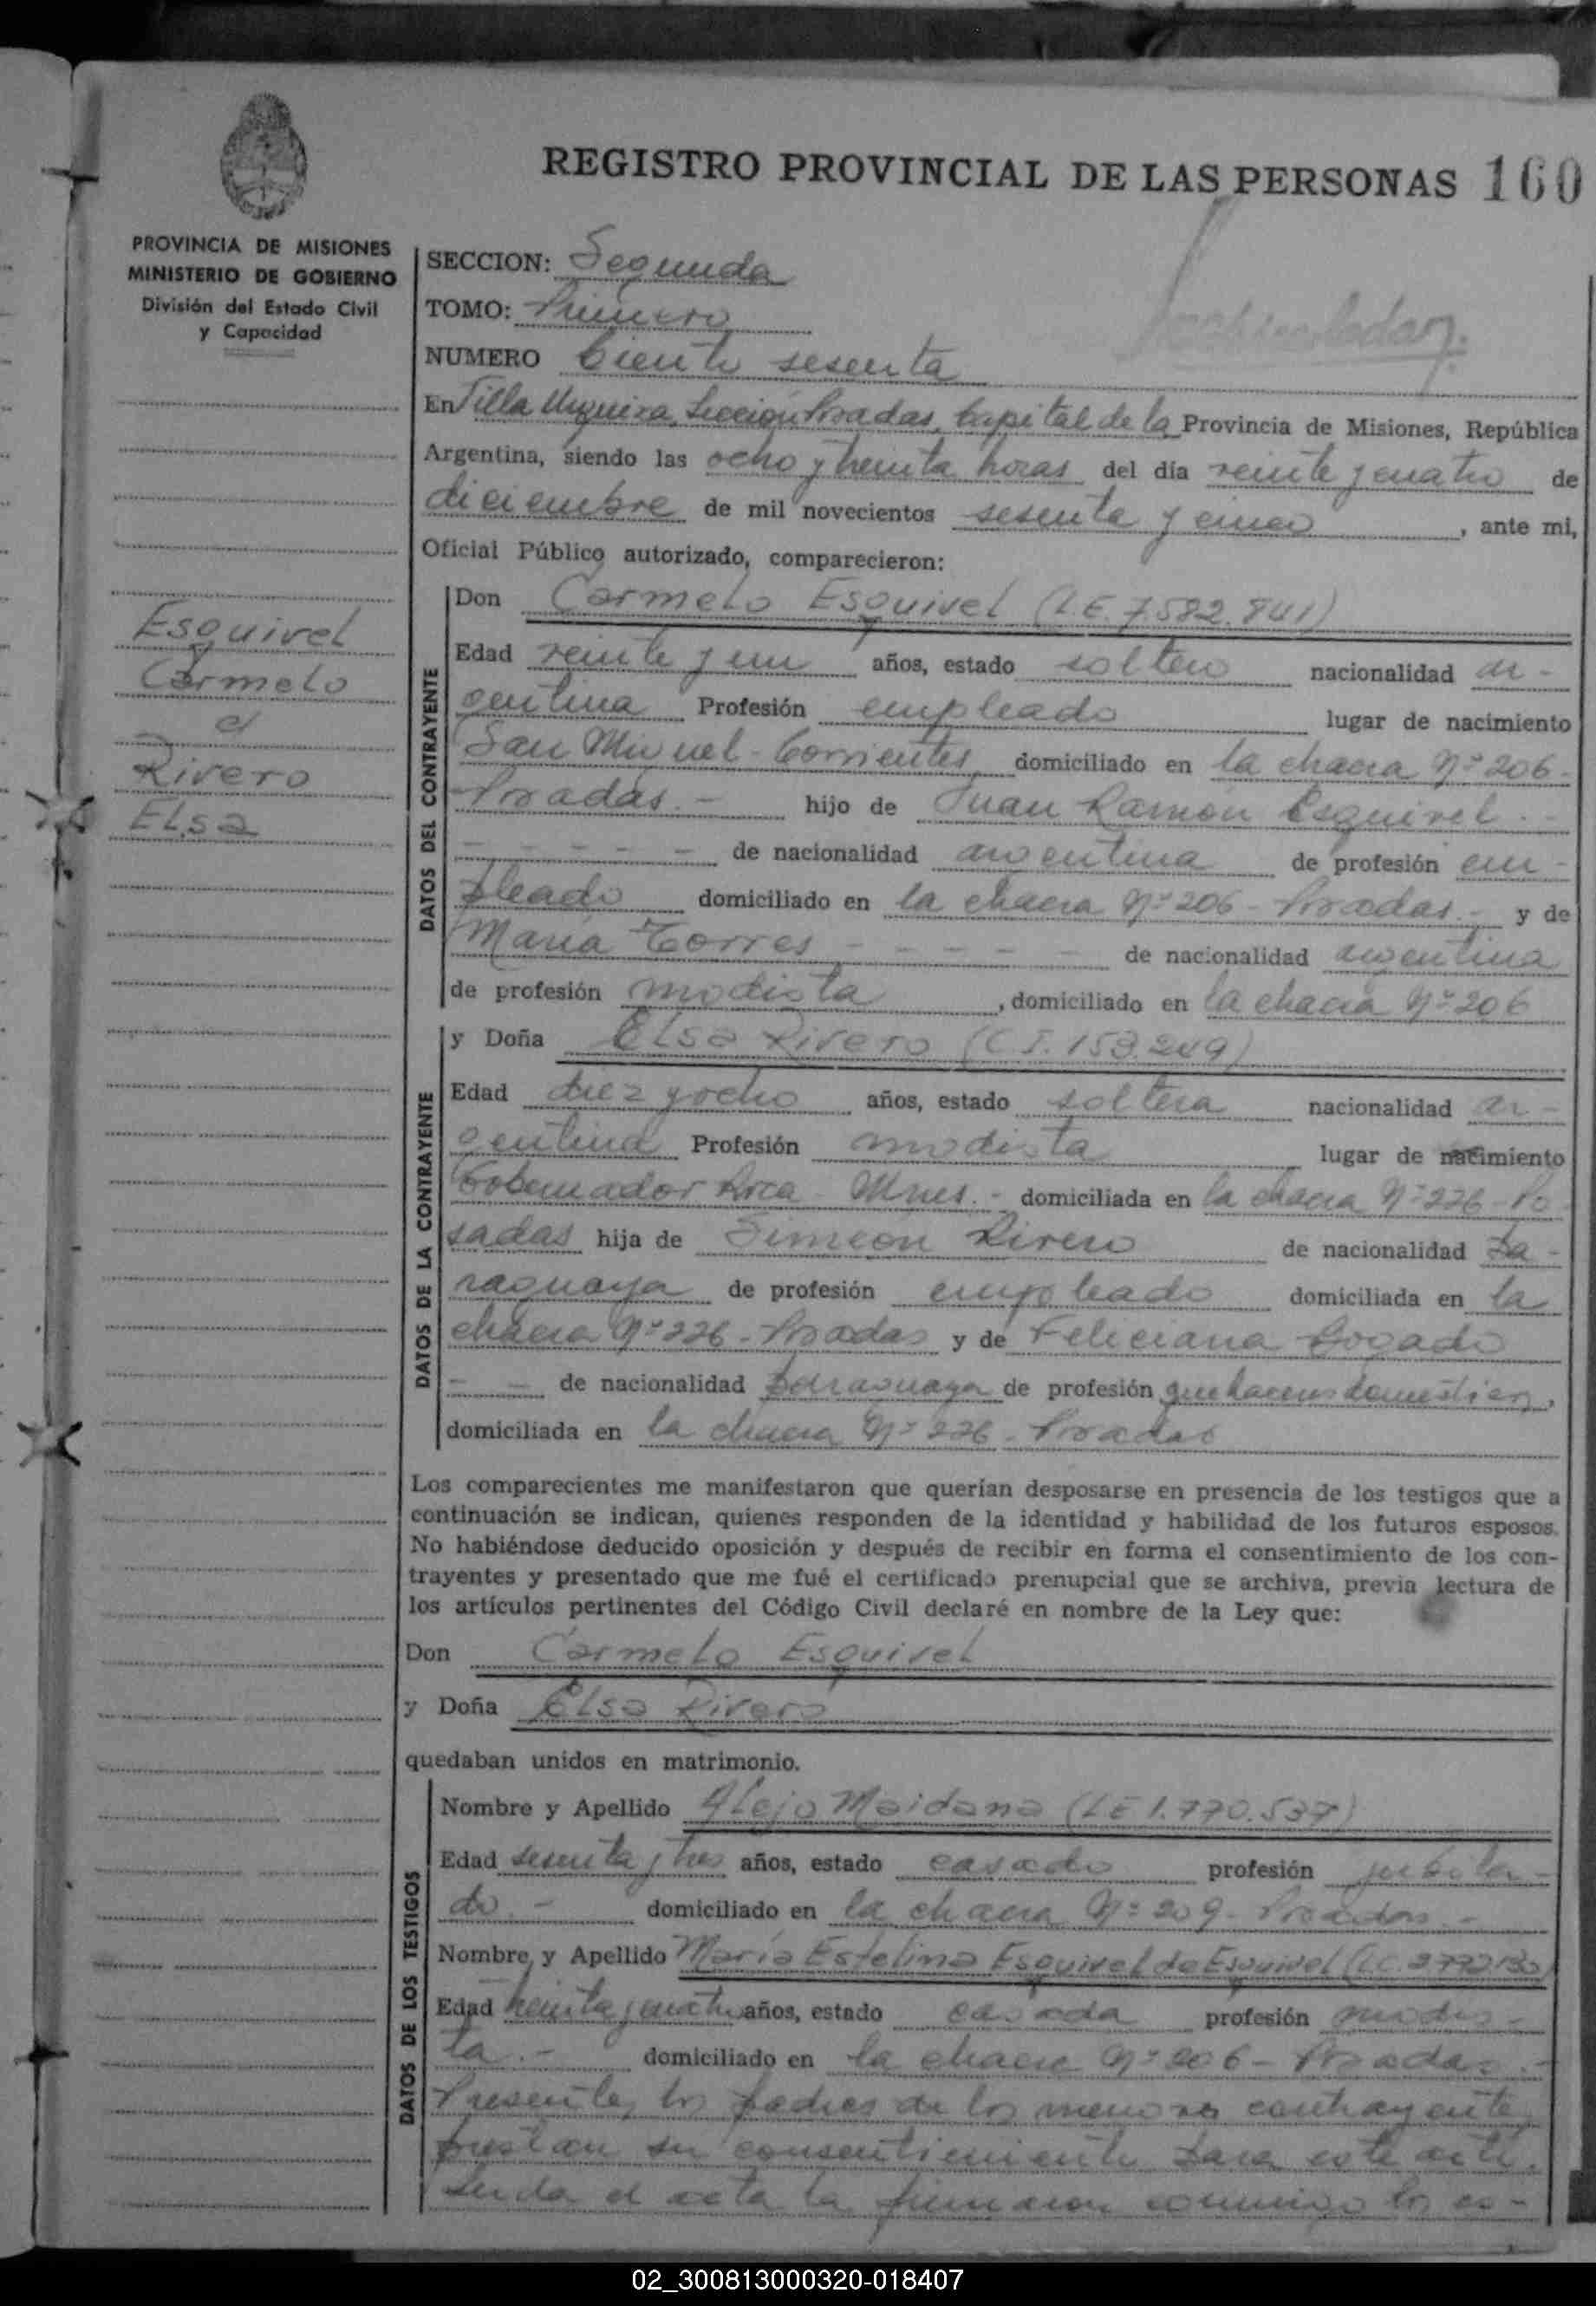 REGISTRO PROVINCIAL DE LAS PERSONAS 160
PROVINCIA DE MISIONES
MINISTERIO DE GOBIERNO
División del Estado Civil
y Capacidad
Esquivel
Carmelo
c/
Rivero
Elsa
SECCION: Segunda
TOMO: Primero
NUMERO Ciento sesenta
En Villa Urquiza, Sección Posadas, Capital de la Provincia de Misiones, República
Argentina, siendo las ocho y treinta horas del día veinte y cuatro de
diciembre de mil novecientos sesenta y cinco, ante mi,
Oficial Público autorizado, comparecieron:
DATOS DEL CONTRAYENTE
Don Carmelo Esquivel (L.E. 7.582.841)
Edad veinte y un años, estado soltero nacionalidad ar-
gentina Profesión empleado lugar de nacimiento
San Miguel - Corrientes, domiciliado en la chacra Nº 206-
Posadas.- hijo de Juan Ramón Esquivel.-
- - - - - de nacionalidad argentina de profesión em-
pleado domiciliado en la chacra Nº 206 - Posadas.- y de
María Torres - - - - - de nacionalidad argentina
de profesión modista, domiciliado en la chacra Nº 206
DATOS DE LA CONTRAYENTE
y Doña Elsa Rivero (C.I. 153.249)
Edad diez y ocho años, estado soltera nacionalidad ar-
gentina Profesión modista lugar de nacimiento
Gobernador Roca - Mnes.- domiciliada en la chacra Nº 226 - Po
sadas hija de Simeón Rivero de nacionalidad pa-
raguaya de profesión empleado domiciliada en la
chacra Nº 226 - Posadas y de Feliciana Bogado
- - de nacionalidad paraguaya de profesión quehaceres domésticos,
domiciliada en la chacra Nº 226 - Posadas
Los comparecientes me manifestaron que querían desposarse en presencia de los testigos que a
continuación se indican, quienes responden de la identidad y habilidad de los futuros esposos.
No habiéndose deducido oposición y después de recibir en forma el consentimiento de los con-
trayentes y presentado que me fué el certificado prenupcial que se archiva, previa lectura de
los artículos pertinentes del Código Civil declaré en nombre de la Ley que:
Don Carmelo Esquivel
y Doña Elsa Rivero
quedaban unidos en matrimonio.
DATOS DE LOS TESTIGOS
Nombre y Apellido Alejo Maidana (L.E 1.770.537)
Edad sesenta y tres años, estado casado profesión jubila-
do.- domiciliado en la chacra Nº 209 - Posadas.-
Nombre y Apellido María Estelina Esquivel de Esquivel (L.C. 2.772.130)
Edad treinta y cuatro años, estado casada profesión modis-
ta.- domiciliado en la chacra Nº 206 - Posadas.-
Presente, los padres de los menores contrayente,
prestan su consentimiento para este acto.
Leida el acta la firmaron conmigo los es-
02_300813000320-018407